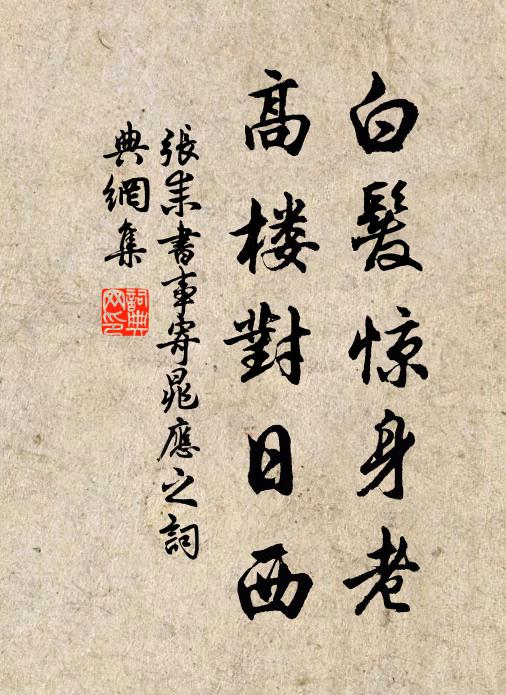 白髮惊身老
高楼對日西
張耒書事寄晁應之詞
典網集
詞典
网印